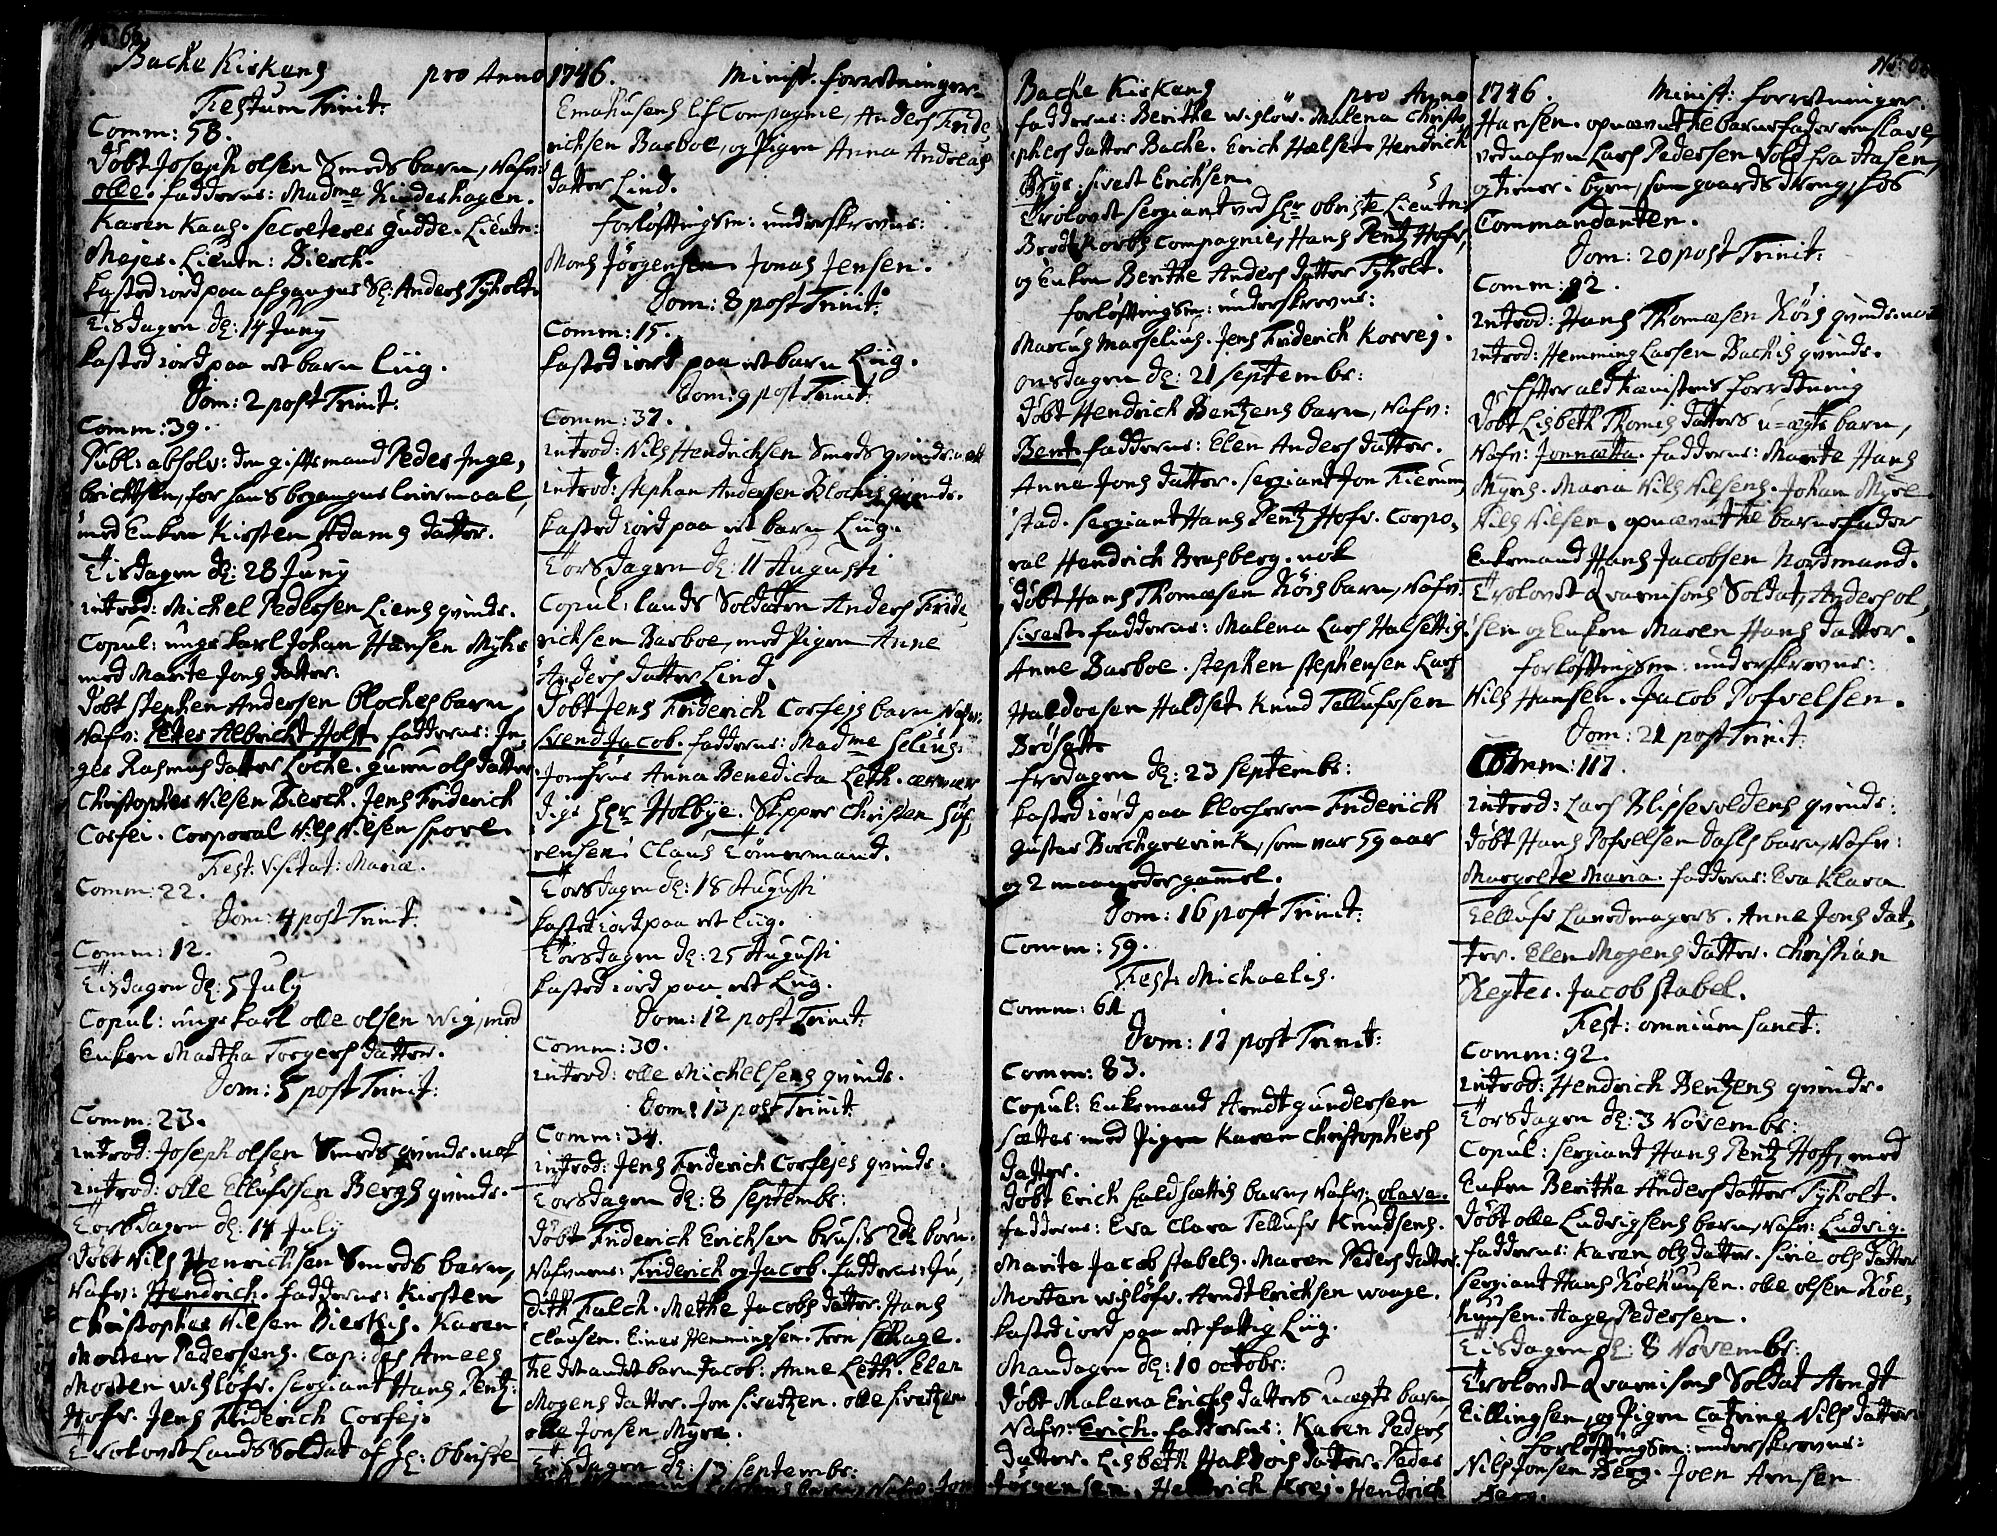 Bache Kirkens pro Anno 1746. Minist. forretninger.
Festum Trinit:
Comm: 58.
döbt Joseph olsen Smeds barn, Nafn:
olle. fadderne: Madme Kindeshagen.
Karen Kaas. secreterer gudde. Lieutn:
Mejer. Lieutn: Bierck.
kasted iord paa afgangne Sl: Anders Tÿholt.
Tisdagen d: 14 Junÿ
kasted iord paa et barn liig.
Dom: 2 post Trinit:
Comm: 39.
Publ: absolv: den giftemand Peder Inge,
brichtsen, for hans begangne leiermaal,
med Enken Kirsten Adams datter.
Tisdagen d: 28 Junÿ
introd: Michel Pedersen Liens qvinde.
Copul: unge karl Johan Hansen Myhr
med Marite Jons datter.
döbt stephen Andersen Bloches barn,
Nafn: Peter Albricht Holst. fadderne: In,
ger Rasmus datter Loche. guru ols datter.
Christopher Nilsen Bierck. Jens Friderich
Corfei. Corporal Nils Nilsen spore.
Fest: Visitat: Mariæ.
Comm: 22.
Dom: 4 post Trinit:
Comm: 12.
Tisdagen d: 5 July
Copul: unge karl olle olsen Wig, med
Enken Martha Torgers datter.
Dom: 5 post Trinit:
Comm: 23.
introd: Joseph olsen Smeds qvinde. nok
introd: olle Ellufssen Bergs qvinde.
Torsdagen d: 14 July
döbt Nils Henrichsen Smeds barn,
Nafn: Hendrich. fadderne: Kirsten
Christopher Nilsen Bierchis. Karen
Morten Pedersens. Cap: des Amees
Morten wislöfr. sergiant Hans Pentz:
Hofr. Jens Friderich Corfejs
Trolovet Lands Soldat af H: Obriste
Emahusens lif Compagnie, Anders Fride,
richsen Barboe, og Pigen Anna Andreas
datter Lind.
forlöftningsm: underskrevne:
Mons Jörgensen. Jonas Jensen.
Dom: 8 post Trinit:
Comm: 15.
kasted iord paa et barn Liig.
Dom: 9 post Trinit:
Comm: 37.
introd: Nils Hendrichsen Smeds qvinde. nok
introd: stephan Andersen Blochis qvinde.
kasted iord paa et barn Liig.
Torsdagen d: 11 Augusti
Copul: lands Soldaten Anders Fride,
richsen Barboe, med Pigen Anne
Anders datter Lind.
döbt Jens Friderich Corfejs barn, Nafn:
Svend Jacob. fadderne: Madme Selius.
Jomfrue Anna Benedicta Leth. ærvær
dige Hr Holbÿe. Skipper Christen Söf,
rensen. Claus Tömermand.
Torsdagen d: 18 Augusti
kasted iord paa et liig.
Torsdagen d: 25 Augusti
kasted iord paa et Liig.
Dom: 12 post Trinit:
Comm: 30.
introd: olle Michelsens qvinde.
Dom: 13 post Trinit:
Comm: 34.
introd: Jens Friderich Corfejes qvinde.
Torsdagen d: 8 Septembr:
döbt Friderich Erichsen brusis 2de börn.
Nafnene: Friderich og Jacob. fadderne: Ju,
dith Falch. Methe Jacobs datter. Hans
Clausen. Einer Hemmingsen. Tron
Til det andet barn Jacob: Anne Leth. Elen
Mogens datter. Jon sivertzen. olle sivertzen
olle Jonsen Myre.
Tisdagen d: 13 Septembr:
Bache Kirkens pro Anno 1746. Minist: forretninger:
fadderne: Berithe wislöv. Malena Christo
phers datter Bache. Erich Halset. Hendrich
Brys. sivert Erichsen.
Trolovet sergiant ved Hr obriste Lieutn:
Brodtkorbs Compagnie, Hans Pentz Hofr,
og Enken Berithe Anders datter Tÿholt.
forlöftningsm: underskrevne:
Marcus Marselius. Jens Friderich Korvej.
onsdagen d: 21 Septembr:
döbt Hendrich Bentzens barn, Nafn:
Bent. fadderne: Elen Anders datter.
Anna Jons datter. sergiant Jon Tierum,
stad. sergiant Hans Pentz Hofr. Corpo,
ral Hendrich Brasberg. nok
döbt Hans Thomæsen Röis barn, Nafn:
sivert. fadderne: Malena Lars Halsettis.
Anne Barboe. stephen stephensen. Lars
Haldoesen Haldset. Knud Tellufssen
Brösatte
fredagen d: 23 Septembr:
kasted iord paa klocheren Friderich
Gustav Borchgrevink, som var 59 aar
og 2 maaneder gammel.
Dom: 16 post Trinit:
Comm: 59.
Fest: Michaelis.
Comm: 61
Dom: 17 post Trinit:
Comm: 83.
Copul: Enkemand Arndt gundersen
sætter med Pigen Karen Christophers
datter.
döbt Erich haldsættis barn, Nafn: olava.
fadderne: Eva Clara Tellufr Knudsens.
Marite Jacob stabels. Maren Peders datter.
Morten wislöfr. Arndt Erichsen waage.
kasted iord paa et fattig Liig.
Mandagen d: 10 octobr:
döbt Malena Erichs datters uægte barn
Nafn: Erich. fadderne: Karen Peders
datter. Lisbeth Haldois datter. Peder
Jörgensen. Hendrich Krej. Hendrich
Hansen. opnævnt til barnefader en slave,
ved nafn Lars Pedersen Vold fra Aasen,
og tiener i byen, som gaards dreng, hos
Commandanten.
Dom: 20 post Trinit:
Comm: 92.
introd: Hans Thomæsen Röis qvinde. nok
introd: Hemming Larsen Bachis qvinde.
og Efter altt kænistens forretning
döbt Lisbeth Thomes datters u=ægte barn,
Nafn: Jonnætta. fadderne: Marite Hans
Myris. Maria Nils Nilsens. Johan Myre.
Nils Nilsen. opnævnt til barnefader
Enkemand Hans Jacobsen Nordmand.
Trolovet Qvarnisons Soldat, Anders ol,
sen og Enken Maren Hans datter.
forlöftningsm: underskrevne:
Nils Hansen. Jacob Pofvelsen.
Dom: 21 post Trinit:
Comm: 117.
introd: Lars Blissevoldens qvinde:
döbt Hans Pofvelsen Dahls barn, Nafn:
Margrete Maria. fadderne: Eva Klara
Tellufr Lavedmagers. Anne Jons dat,
ter. Elen Mogens datter. Christian
Regter. Jacob stabel.
Fest: omnium sanct:
Comm: 92.
introd: Hendrich Bentzens qvinde.
Torsdagen d: 3 Novembr:
Copul: sergiant Hans Pentz Hoff, med
Enken Beritha Anders datter Tÿholt.
döbt olle Ludvigsens barn, Nafn: Ludvig.
fadderne: Karen ols datter. sirie ols datter
sergiant Hans Röelhunsen. olle olsen Röe,
hunsen. Hage Pedersen.
Tisdagen d: 8 Novembr:
Trolovet Qvarnisons Soldat Arndt
Tillingsen, og Pigen Catring Nils datter
forlöftningsm: underskrevne:
Nils Jonsen Berg. Joen Arnsen
Berg.